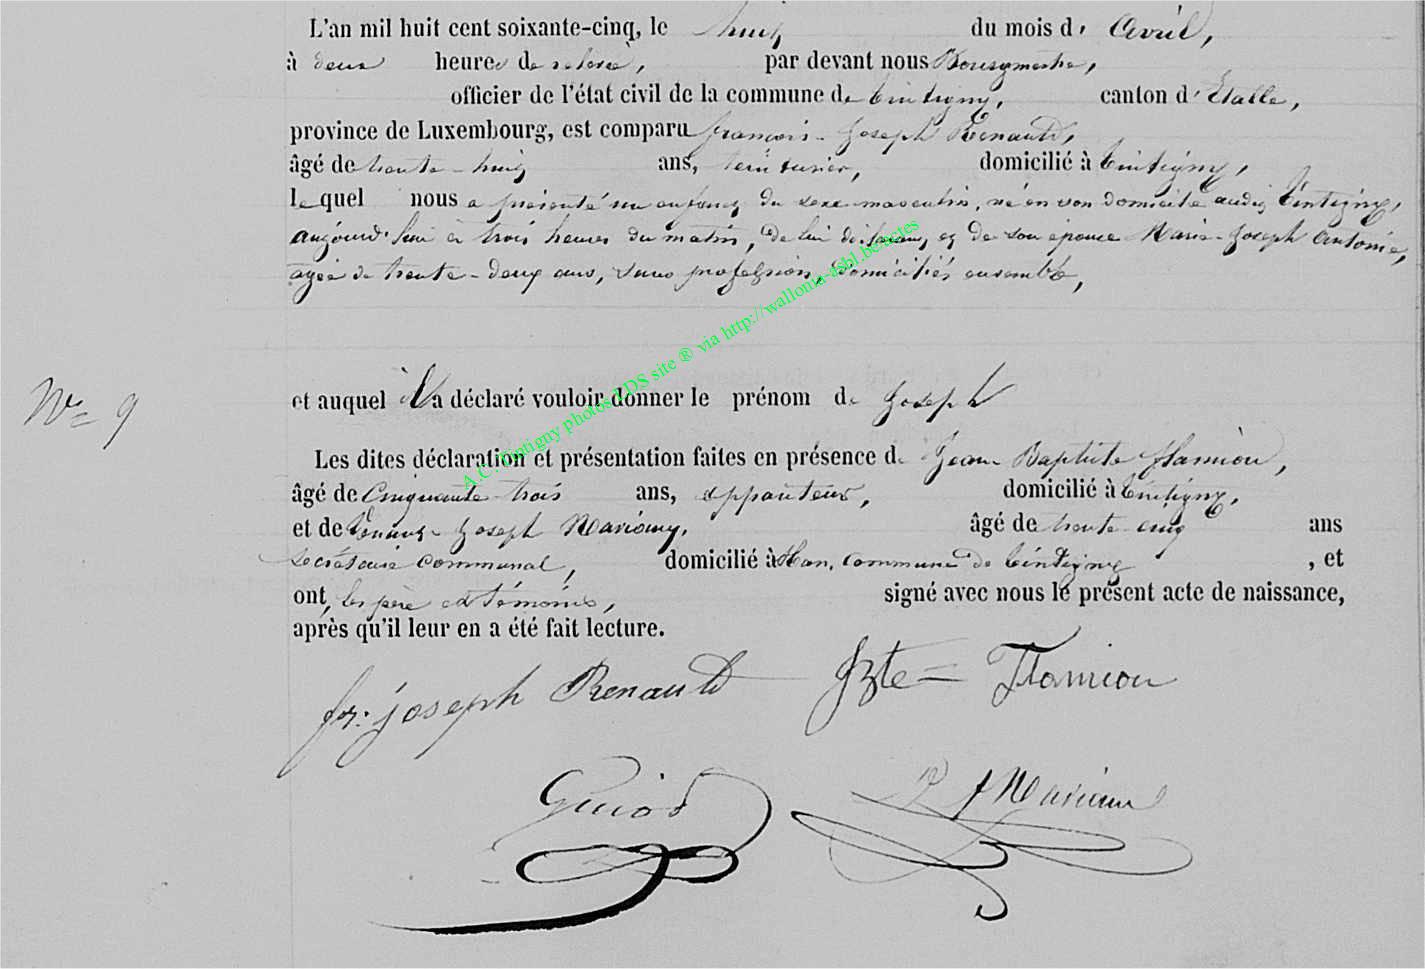 L'an mil huit cent soixante-cinq, le huit du mois d' Avril,
à deux heures de relevée, par devant nous Bourgmestre,
officier de l'état civil de la commune de Tintigny, canton d' Etalle,
province de Luxembourg, est comparu françois-Joseph Renauld,
âgé de trente-huit ans, teinturier, domicilié à Tintigny,
lequel nous a présenté un enfant du sexe masculin, né en son domicile audit Tintigny,
aujourd'hui à trois heures du matin, de lui déclarant, et de son épouse Marie-Joseph Antoine,
agée de trente-deux ans, sans profession, domiciliés ensemble,
N° 9
et auquel il a déclaré vouloir donner le prénom de Joseph
Les dites déclaration et présentation faites en présence de Jean Baptiste flamion,
âgé de Cinquante-trois ans, appariteur, domicilié à Tintigny,
et de Joseph âgé de trente-cinq ans
secrétaire communal, domicilié à Han, commune de Tintigny, et
ont, les père et témoins, signé avec nous le présent acte de naissance,
après qu'il leur en a été fait lecture.
fr. joseph Renauld JBte Flamion
Guiot
A.C. Tintigny photos LDS site ® via http://wallonia-asbl.be/actes